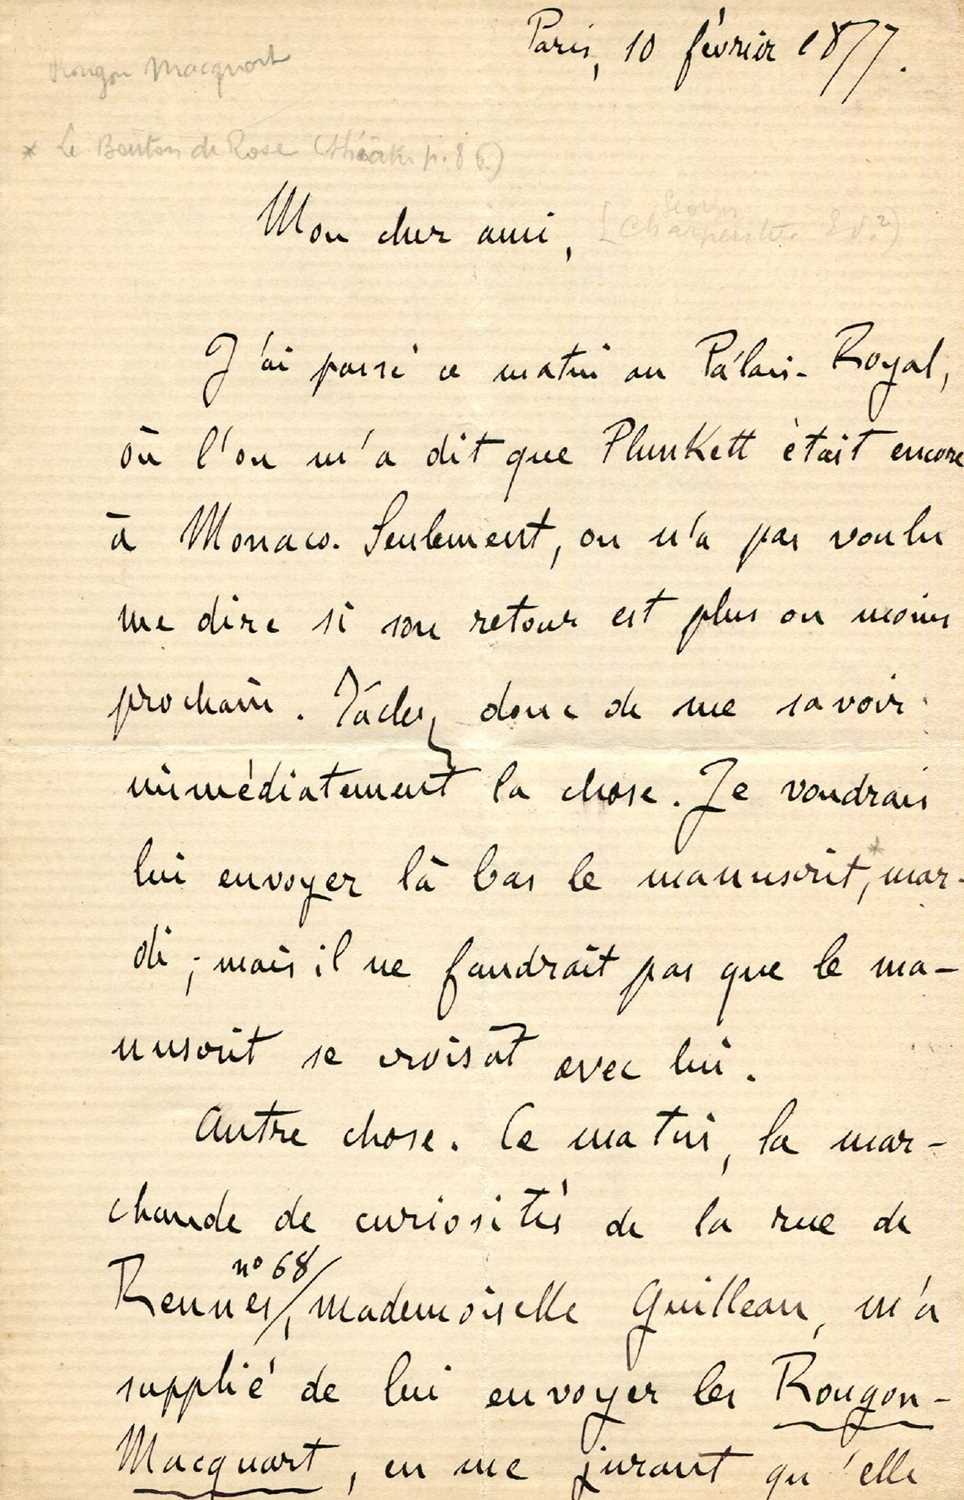 Paris, 10 février 1877.
Rougon Macquart
* Le Bouton de Rose (théâtre p. 86)
Mon cher ami,
[Georges
Charpentier
J'ai passé ce matin au Palais-Royal,
où l'on m'a dit que Plunkett était encore
à Monaco. Seulement, on n'a pas voulu
me dire si son retour est plus ou moins
prochain. Tâchez donc de me savoir
immédiatement la chose. Je voudrais
lui envoyer là bas le manuscrit,* mar-
di ; mais il ne faudrait pas que le ma-
nuscrit se croisât avec lui.
Autre chose. Ce matin, la mar-
chande de curiosités de la rue de
n° 68/
Rennes/, mademoiselle Guilleau, m'a
supplié de lui envoyer les Rougon-
Macquart, en me jurant qu'elle